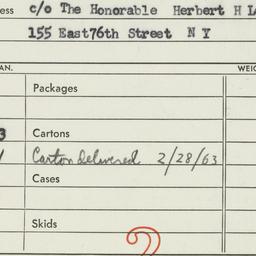 ess c/o The Honorable Herbert H
155 East76th Street N Y
AN. WEIG
Packages
3 Cartons
Carton Delivered 2/28/63
Cases
Skids